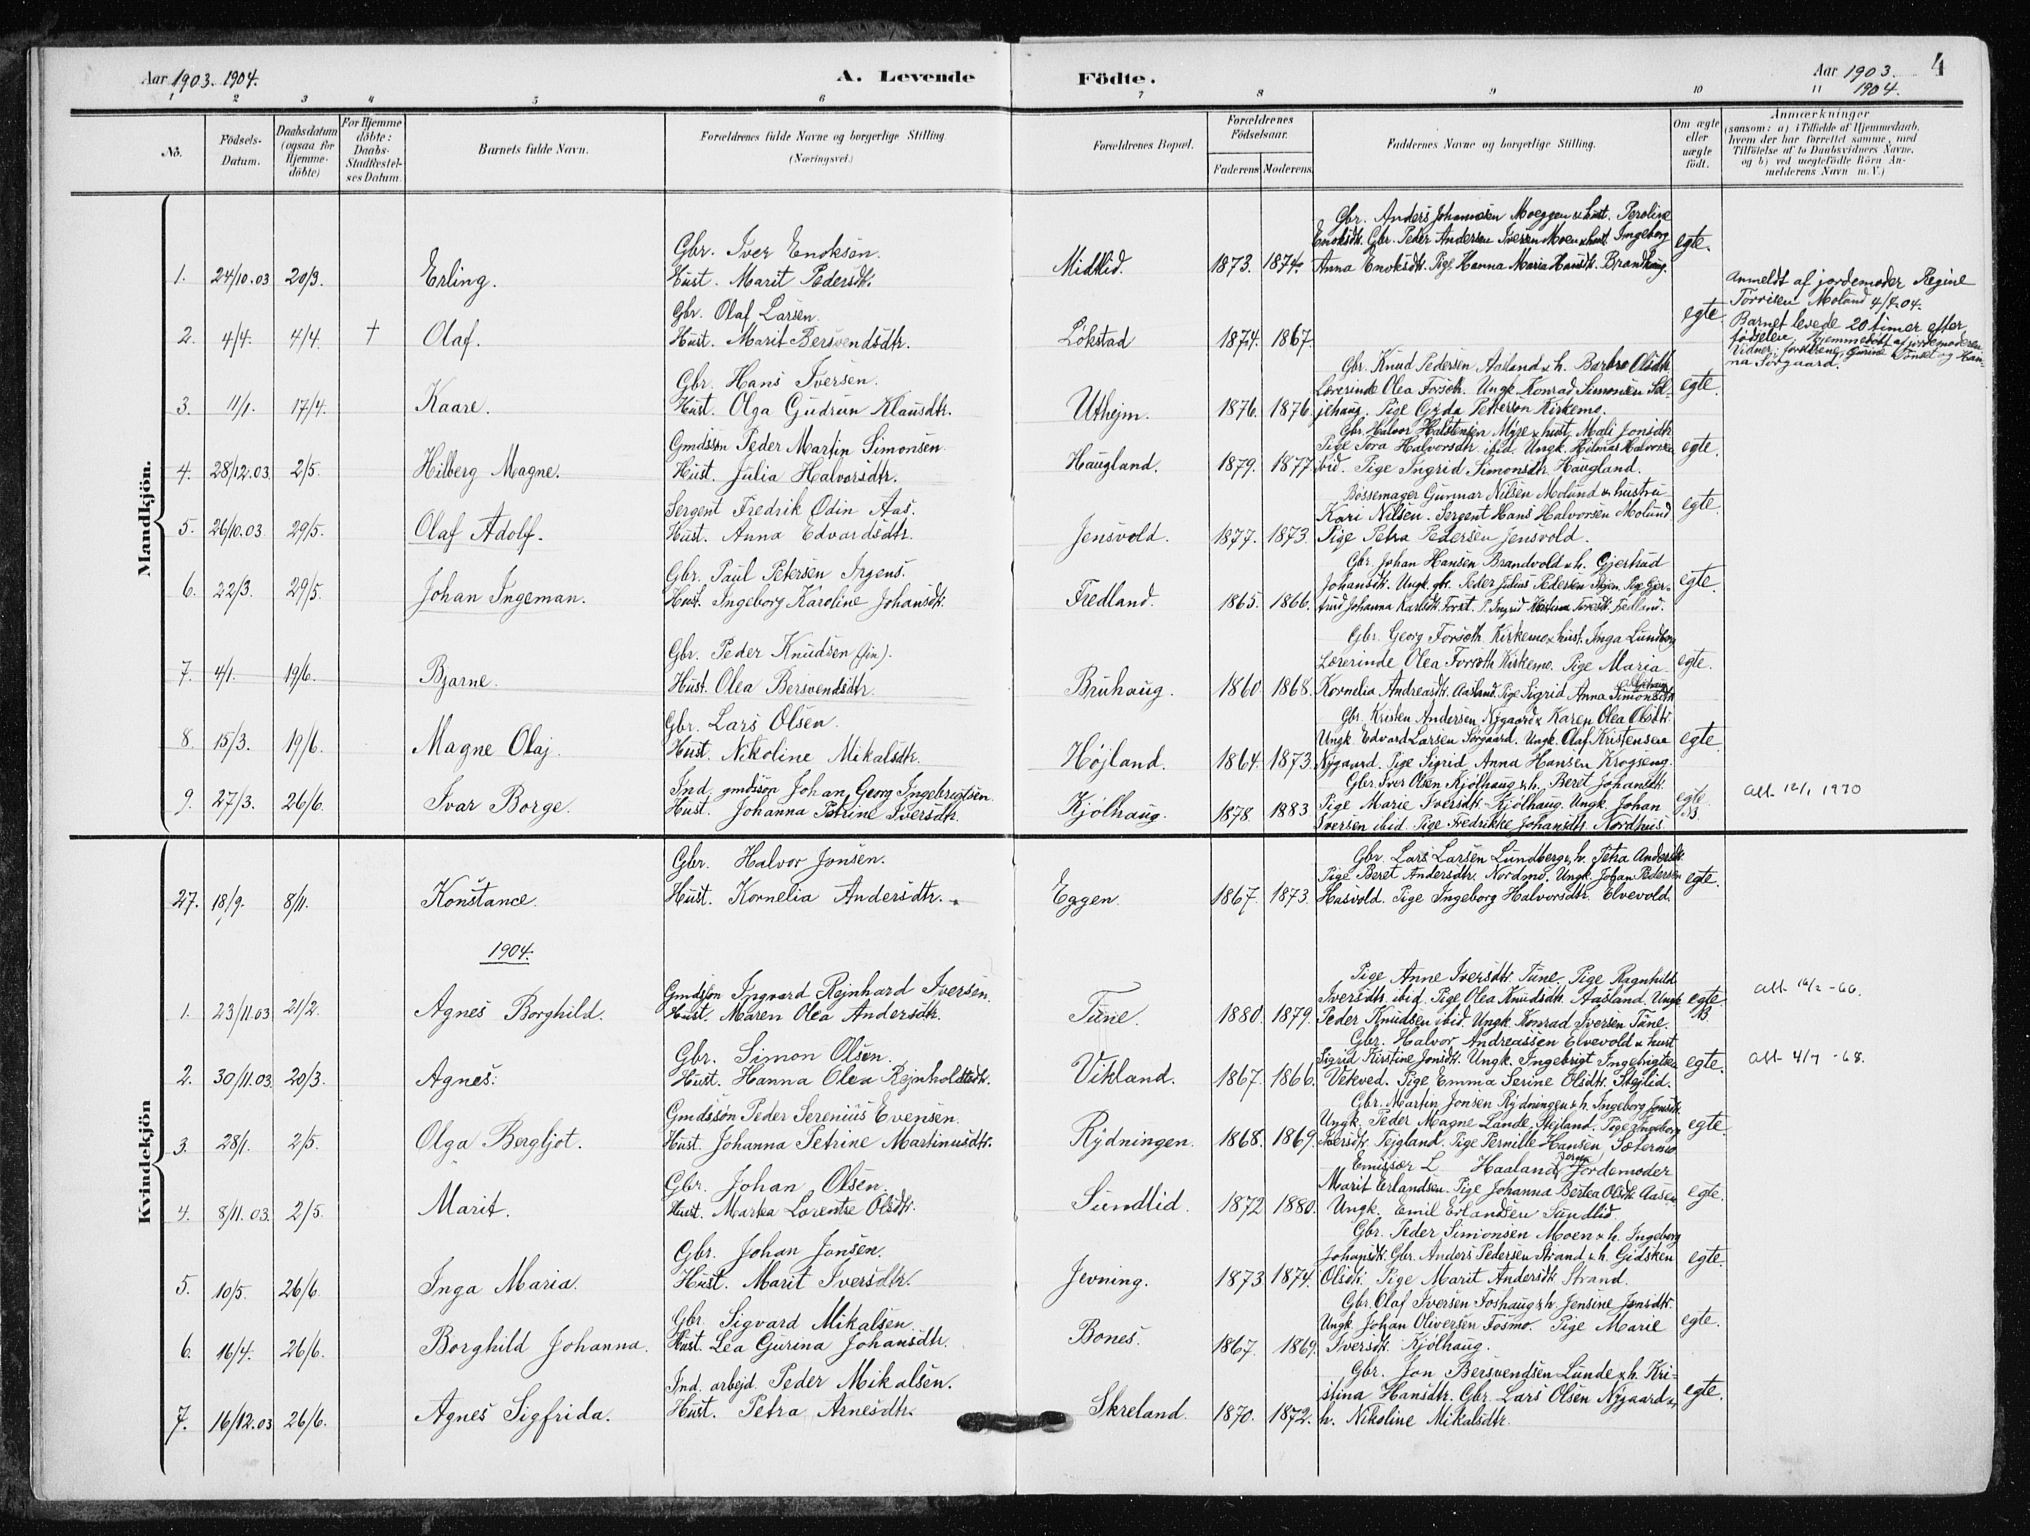 Aar 1903. 1904.
A. Levende
Födte.
Aar 1903. 1904.
4
1 2 3 4 5 6 7 8 9 10 11
No.
Födsels-Datum.
Daabsdatum (ogsaa for Hjemme-döbte)
For Hjemme döbte: Daabs-Stadfæstel-ses Datum.
Barnets fulde Navn.
Forældrenes fulde Navne og borgerlige Stilling. (Næringsvei.)
Forældrenes Bopæl.
Forældrenes Födselsaar.
Faderens Moderens.
Faddernes Navne og borgerlige Stilling.
Om ægte eller uægte födt.
Anmærkninger
(saasom: a) i Tilfælde af Hjemmedaab,
hvem der har forrettet samme, med
Tilföielse af to Daabsvidners Navne,
og b) ved uægtefödte Börn An-
melderens Navn m. V.)
Mandkjön.
Gbr. Anders Johansen Moeggen & hust. Peroline
Gbr. Iver Enoksen.
Enoksdtr. Gbr. Peder Andersen Iversen Moen & hust. Ingeborg
egte.
1. 24/10.03 20/3. Erling. Hust. Marit Pedersdtr. Midtlid. 1873. 1874. Anna Enoksdtr. Pige Hanna Maria Hansdtr. Brandhaug.
Gbr. Olaf Larsen.
egte
Anmeldt af jordemoder Regine
Torrisen Moland 4/4.04.
2. 4/4. 4/4. † Olaf. Hust. Marit Bersvendsdtr. Løkstad 1874. 1867.
Barnet levede 20 timer efter
fødselen. Hjemmedøbt af jordemoderen.
Vidner: forældrene, Gurine Tønset og Han-
na Sørgaard.
Gbr. Knud Pedersen Aasland & h. Barbro Olsdtr.
Gbr. Hans Iversen.
Lærerinde Olea Forseth. Ungk. Konrad Simonsen Sol-
egte.
3. 11/1. 17/4. Kaare. Hust. Olga Gudrun Klausdtr. Uthejm. 1876. 1876. jehaug. Pige Gyda Petterson Kirkemo.
Gbr. Halvor Halstensen Myre & hust. Mali Jonsdtr.
Gmdssøn Peder Martin Simonsen
Pige Tora Halvorsdtr. ibid. Ungk. Hilmar Halvorsen
egte.
4. 28/12.03. 2/5. Hilberg Magne. Hust. Julia Halvorsdtr. Haugland. 1879. 1877 ibid. Pige Ingrid Simonsdtr. Haugland.
Bøssemager Gunnar Nilsen Molund & hustru
Sergent Fredrik Odin Aas.
Kari Nilsen. Sergent Hans Halvorsen Molund
egte.
5. 26/10.03. 29/5. Olaf Adolf. Hust. Anna Edvardsdtr. Jensvold. 1877. 1873. Pige Petra Pedersen Jensvold.
Gbr. Johan Hansen Brandvold & h. Gjertrud
Gbr. Paul Petersen Irgens.
Johansdtr. Ungk. gbr. Peder Julius Pedersen
egte.
6. 22/3. 29/5. Johan Ingeman. Hust. Ingeborg Karoline Johansdtr. Fredland. 1865. 1866.
Gbr. Georg Forseth Kirkemo & hust. Inga Lundberg
Gbr. Peder Knudsen (fin).
Lærerinde Olea Forseth Kirkemo. Pige Maria
egte.
7. 4/1. 19/6. Bjarne. Hust. Olea Bersvendsdtr. Bruhaug. 1860 1868. Kornelia Andreasdtr. Aasland. Pige Sigrid Anna Simonsdtr
Gbr. Kristen Andersen Nygaard & Karen Olea Olsdtr.
Gbr. Lars Olsen.
Ungk. Edvard Larsen Sørgaard. Ungk. Olaf Kristensen
egte.
8. 15/3. 19/6. Magne Olaj. Hust. Nikoline Mikalsdtr. Højland. 1864. 1873. Nygaard. Pige Sigrid Anna Hansen Krogseng.
Gbr. Iver Olsen Kjølhaug & h. Beret Johansdtr.
Ind. gmdssøn Johan Georg Ingebrigtsen.
Pige Marie Iversdtr. Kjølhaug. Ungk. Johan
egte.
B.
All. 12/1 1970
9. 27/3. 26/6. Ivar Borge. Hust. Johanna Petrine Iversdtr. Kjølhaug. 1878 1883
Iversen ibid. Pige Fredrikke Johansdtr. Nordhus.
Kvindekjön
Gbr. Lars Larsen Lundberg & h. Petra Andersdtr
Gbr. Halvor Jonsen.
Pige Beret Andersdtr. Nordmo. Ungk. Johan Pedersen
egte.
27. 18/9. 8/11. Konstance. Hust. Kornelia Andersdtr. Eggen. 1867. 1873. Hasvold. Pige Ingeborg Halvorsdtr. Elvevold.
1904.
Pige Anne Iversdtr. Tune. Pige Ragnhild
Gmdssøn Ingvard Rejnhard Iversen.
Iversdtr. ibid. Pige Olea Knudsdtr. Aasland. Ungk
egte
B.
All. 16/2 -66.
1. 23/11.03 21/2. Agnes Borghild. Hust. Maren Olea Andersdtr. Tune. 1880. 1879. Peder Knudsen ibid. Ungk. Konrad Iversen Tune.
Gbr. Halvor Andreassen Elvevold & hust
Gbr. Simon Olsen.
Sigrid Kirstine Jonsdtr. Ungk. Ingebrigt Ingebrigtsen
egte.
All. 4/7 -68.
2. 30/11.03 20/3. Agnes. Hust. Hanna Olea Rejnholdtsdtr. Vikland. 1867. 1866. Vekved. Pige Emma Serine Olsdtr. Stejlid.
Gbr. Martin Jonsen Rydningen & h. Ingeborg Jonsdtr.
Gmdssøn Peder Serenius Evensen.
Ungk. Peder Magne Lande, Stejland. Pige Ingeborg
egte.
3. 28/1. 2/5. Olga Bergljot. Hust. Johanna Petrine Martinusdtr. Rydningen. 1868. 1869. Iversdtr. Tejgland. Pige Pernille Hansen Sætermo
Emissær L. Haaland Jordemoder
Gbr. Johan Olsen.
Marit Erlandsen. Pige Johanna Bertea Olsdtr. Aasen
egte.
4. 8/11.03. 2/5. Marit. Hust. Marka Lorentse Olsdtr. Sundlid. 1872 1880. Ungk. Emil Erlandsen Sundlid
Gbr. Peder Simonsen Moen & h. Ingeborg
Gbr. Johan Jonsen.
Johansdtr. Gbr. Anders Pedersen Strand & h. Gidsken
egte.
5. 10/5. 26/6. Inga Maria. Hust. Marit Iversdtr. Jevning. 1873 1874. Olsdtr. Pige Marit Andersdtr. Strand.
Gbr. Olaf Iversen Foshaug & h. Jensine Jonsdtr.
Gbr. Sigvard Mikalsen.
Ungk. Johan Oliversen Fosmo. Pige Marie
egte.
6. 16/4. 26/6. Borghild Johanna. Hust. Lea Gurina Johansdtr. Bones. 1867. 1869. Iversdtr. Kjølhaug.
Gbr. Jon Bersvendsen Lunde & h. Kri-
Ind. arbejd. Peder Mikalsen.
stina Hansdtr. Gbr. Lars Olsen Nygaard &
egte.
7. 16/12.03 26/6. Agnes Sigfrida. Hust. Petra Arnesdtr. Skreland. 1870. 1872. h. Nikoline Mikalsdtr.